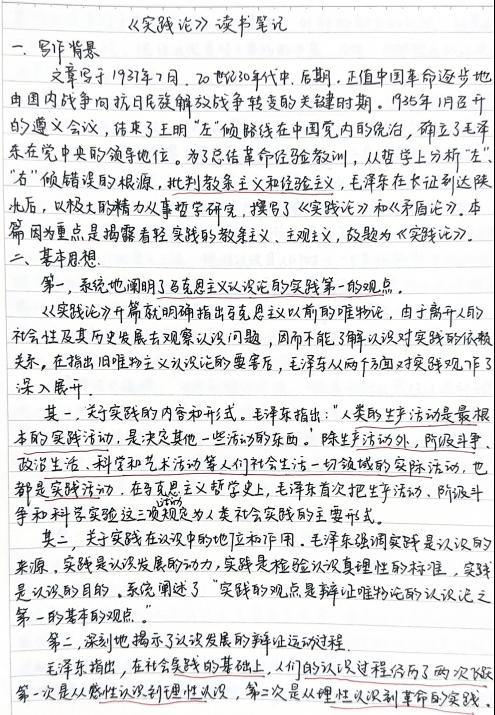 《实践论》读书笔记
一、写作背景
文章写于1937年7月，20世纪30年代中、后期，正值中国革命逐步地
由国内战争向抗日民族解放战争转变的关键时期。1935年1月召开
的遵义会议，结束了王明"左"倾路线在中国党内的统治，确立了毛泽
东在党中央的领导地位。为了总结革命经验教训，从哲学上分析"左"、
"右"倾错误的根源，批判教条主义和经验主义，毛泽东在长征到达陕
北后，以极大的精力从事哲学研究，撰写了《实践论》和《矛盾论》。本
篇因为重点是揭露看轻实践的教条主义、主观主义，故题为《实践论》。
二、基本思想
第一，系统地阐明了马克思主义认识论的实践第一的观点。
《实践论》开篇就明确指出马克思主义以前的唯物论，由于离开人的
社会性及其历史发展去观察认识问题，因而不能了解认识对实践的依赖
关系。在指出旧唯物主义认识论的要害后，毛泽东从两个方面对实践观作了
深入展开。
其一，关于实践的内容和形式。毛泽东指出："人类的生产活动是最根
本的实践活动，是决定其他一些活动的东西。"除生产活动外，阶级斗争、
政治生活、科学和艺术活动等人们社会生活一切领域的实际活动，也
都是实践活动。在马克思主义哲学史上，毛泽东首次把生产活动、阶级斗
争和科学实验这三项活动规定为人类社会实践的主要形式。
其二，关于实践在认识中的地位和作用。毛泽东强调实践是认识的
来源。实践是认识发展的动力，实践是检验认识真理性的标准，实践
是认识的目的。系统阐述了"实践的观点是辩证唯物论的认识论之
第一的基本的观点。"
第二，深刻地揭示了认识发展的辩证运动过程
毛泽东指出，在社会实践的基础上，人们的认识过程经历了两次飞跃
第一次是从感性认识到理性认识，第二次是从理性认识到革命的实践。